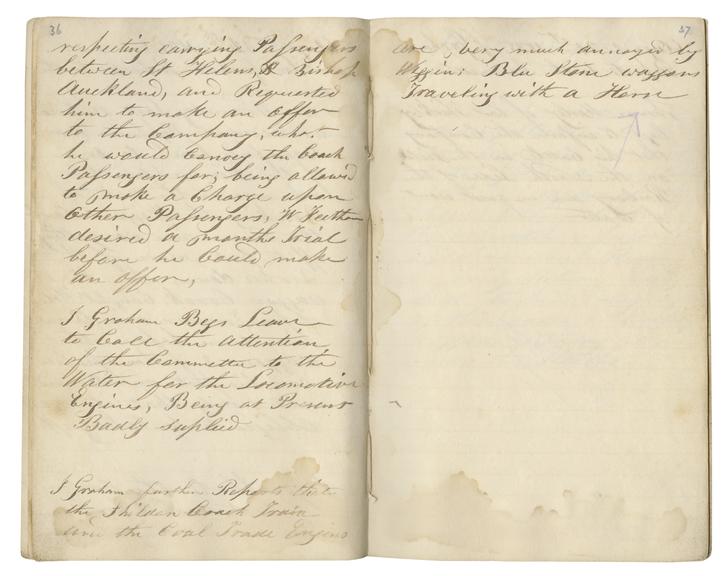 36
respecting carrying Passengers
between St Helens, & Bishop
Auckland, and Requested
him to make an offer
to the Company, what
he would Convey the Coach
Passengers for; being allowed
to make a Charge upon
Other Passengers; W
desired a months Trial
before he Could make
an offer,
J Graham Begs Leave
to Call the Attention
of the Committee to the
Water for the Locomotive
Engines, Being at Present
Badly suplied
J Graham further Reports that
the Shildon Coach Train
and the Coal Trade Engines
37
are, very much annoyed by
Blue Stone waggons
Traveling with a Horse